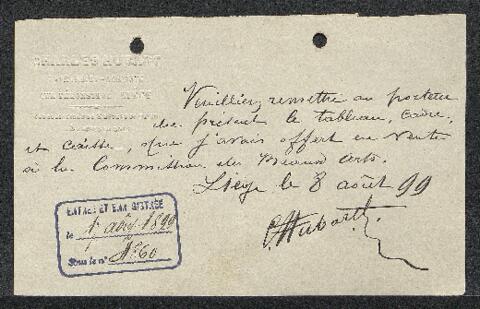 CHARLES HUBART
Veuillez remettre au porteur
du présent le tableau, cadre,
et caisse, que j'avais offert en vente
à la Commission des Beaux Arts.
Liège le 8 août 99
C. Hubart
ENTREE ET ENREGISTREE
le 1 août 1899
Sous le n° 60